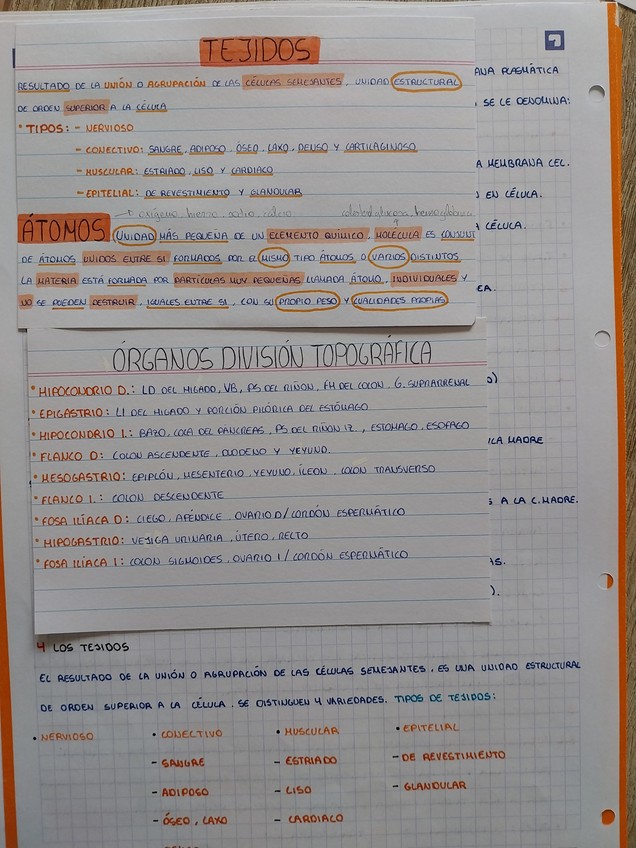 TEJIDOS
RESULTADO DE LA UNIÓN O AGRUPACIÓN DE LAS CÉLULAS SEMEJANTES, UNIDAD ESTRUCTURAL
DE ORDEN SUPERIOR A LA CÉLULA
* TIPOS: - NERVIOSO
- CONECTIVO: SANGRE, ADIPOSO, ÓSEO, LAXO, DENSO Y CARTILAGINOSO
- MUSCULAR: ESTRIADO, LISO Y CARDIACO
- EPITELIAL: DE REVESTIMIENTO Y GLANDULAR
oxígeno, hierro, sodio, calcio
ÁTOMOS UNIDAD MÁS PEQUEÑA DE UN ELEMENTO QUÍMICO, MOLÉCULA ES CONJUNT
DE ÁTOMOS UNIDOS ENTRE SI FORMADOS POR EL MISMO TIPO ÁTOMOS O VARIOS DISTINTOS
LA MATERIA ESTÁ FORMADA POR PARTÍCULAS MUY PEQUEÑAS LLAMADA ÁTOMO, INDIVIDUALES Y
NO SE PUEDEN DESTRUIR, IGUALES ENTRE SI, CON SU PROPIO PESO Y CUALIDADES PROPIAS
ANA PLASMÁTICA
SE LE DENOMINA:
A MEMBRANA CEL.
EN CÉLULA.
CÉLULA.
EA.
ÓRGANOS DIVISIÓN TOPOGRÁFICA
* HIPOCONDRIO D.: LD DEL HIGADO, VB, PS DEL RIÑON, FH DEL COLON, G. SUPRARRENAL
* EPIGASTRIO: LI DEL HIGADO Y PORCIÓN PILÓRICA DEL ESTÓMAGO
* HIPOCONDRIO I.: BAZO, COLA DEL PÁNCREAS, PS DEL RIÑON IZ., ESTOMAGO, ESOFAGO
* FLANCO D.: COLON ASCENDENTE, DUODENO Y YEYUNO.
* MESOGASTRIO: EPIPLÓN, MESENTERIO, YEYUNO, ÍLEON, COLON TRANSVERSO
* FLANCO I.: COLON DESCENDENTE
* FOSA ILÍACA D: CIEGO, APÉNDICE, OVARIO D/CORDÓN ESPERMÁTICO
* HIPOGASTRIO: VEJIGA URINARIA, ÚTERO, RECTO
* FOSA ILÍACA I: COLON SIGMOIDES, OVARIO I/CORDÓN ESPERMÁTICO
ULA MADRE
S A LA C.MADRE.
AS.
4 LOS TEJIDOS
EL RESULTADO DE LA UNIÓN O AGRUPACIÓN DE LAS CÉLULAS SEMEJANTES, ES UNA UNIDAD ESTRUCTURAL
DE ORDEN SUPERIOR A LA CÉLULA. SE DISTINGUEN 4 VARIEDADES. TIPOS DE TEJIDOS:
• NERVIOSO • CONECTIVO • MUSCULAR • EPITELIAL
- SANGRE - ESTRIADO - DE REVESTIMIENTO
- ADIPOSO - LISO - GLANDULAR
- ÓSEO, LAXO - CARDIACO